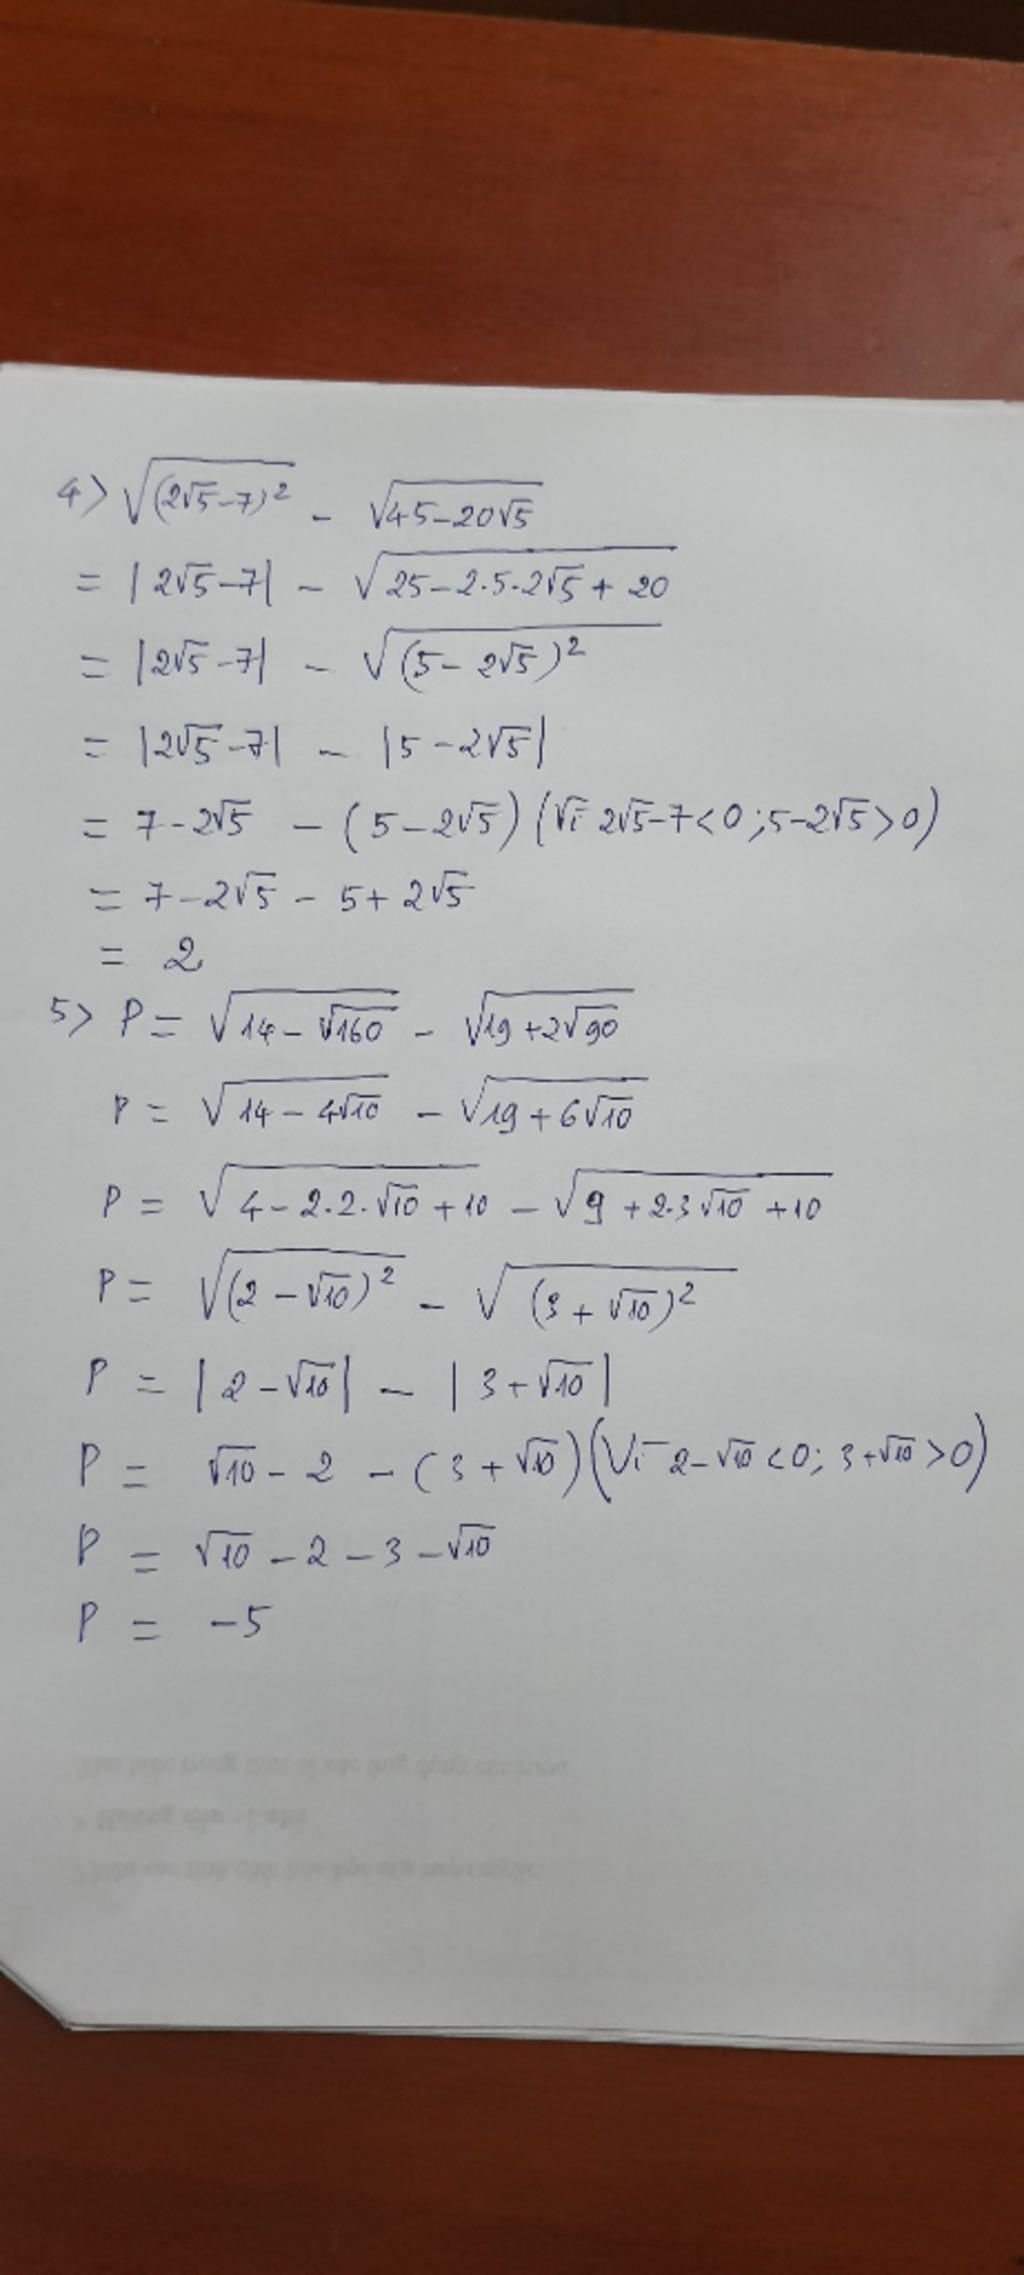 4> √(2√5-7)² - √45-20√5
= |2√5-7| - √25-2.5.2√5 + 20
= |2√5-7| - √(5-2√5)²
= |2√5-7| - |5-2√5|
= 7-2√5 - (5-2√5) (Vì 2√5-7<0; 5-2√5>0)
= 7-2√5 - 5+2√5
= 2
5> P = √14-√160 - √19+2√90
P = √14-4√10 - √19+6√10
P = √4-2.2.√10+10 - √9+2.3√10+10
P = √(2-√10)² - √(3+√10)²
P = |2-√10| - |3+√10|
P = √10-2 - (3+√10) (Vì 2-√10<0; 3+√10>0)
P = √10-2-3-√10
P = -5